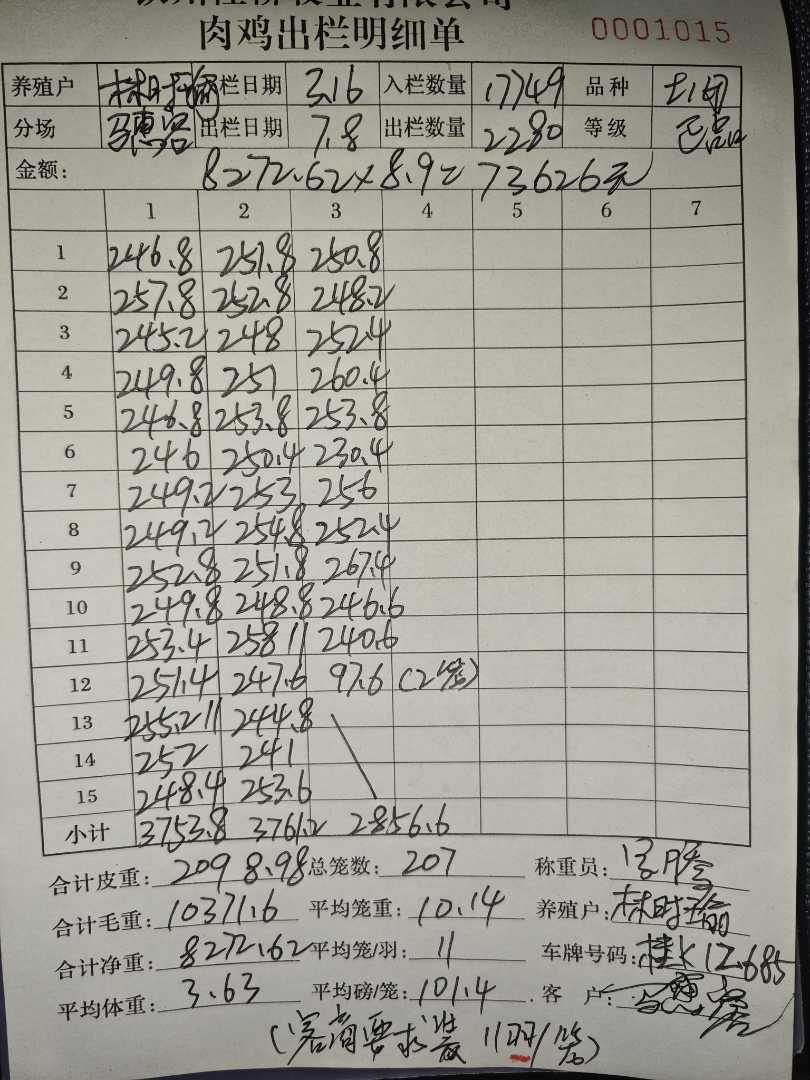 肉鸡出栏明细单 0001015
养殖户 林时 栏日期 3.16 入栏数量 17749 品种
分场 出栏日期 7.8 出栏数量 2280 等级
金额: 8272.62×8.9= 73626元
1 2 3 4 5 6 7
1 246.8 251.8 250.8
2 257.8 252.8 248.2
3 245.2 248 252.4
4 249.8 251 260.4
5 246.8 253.8 253.8
6 246 250.4 230.4
7 249.2 253 256
8 249.2 254.8 252.4
9 252.8 251.8 267.4
10 249.8 248.8 246.6
11 253.4 258 11 240.6
12 251.4 247.6 97.6 (2笼)
13 255.2 11 244.8
14 252 241
15 248.4 253.6
小计 3753.8 3761.2 2856.6
合计皮重: 2098.98 总笼数: 207 称重员:
合计毛重: 10371.6 平均笼重: 10.14 养殖户: 林时
合计净重: 8272.62 平均笼/羽: 11 车牌号码: 桂K12685
平均体重: 3.63 平均磅/笼: 101.4 客 户:
(客商要求装 11羽/笼)